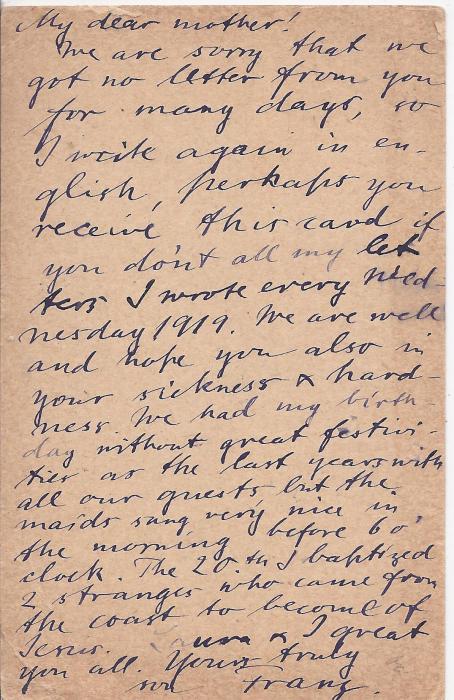 My dear mother!
We are sorry that we
got no letter from you
for many days, so
I write again in en-
glish, perhaps you
receive this card if
you don't all my let
ters I wrote every Wed-
nesday 1919. We are well
and hope you also in
your sickness & hard-
ness. We had my birth-
day without great festivi-
ties as the last years with
all our guests but the
maids sung very nice in
the morning before 6 o'
clock. The 20.th I baptized
2 stranges who came from
the coast to become of
Jesus. & I great
you all. Yours truly
son Franz